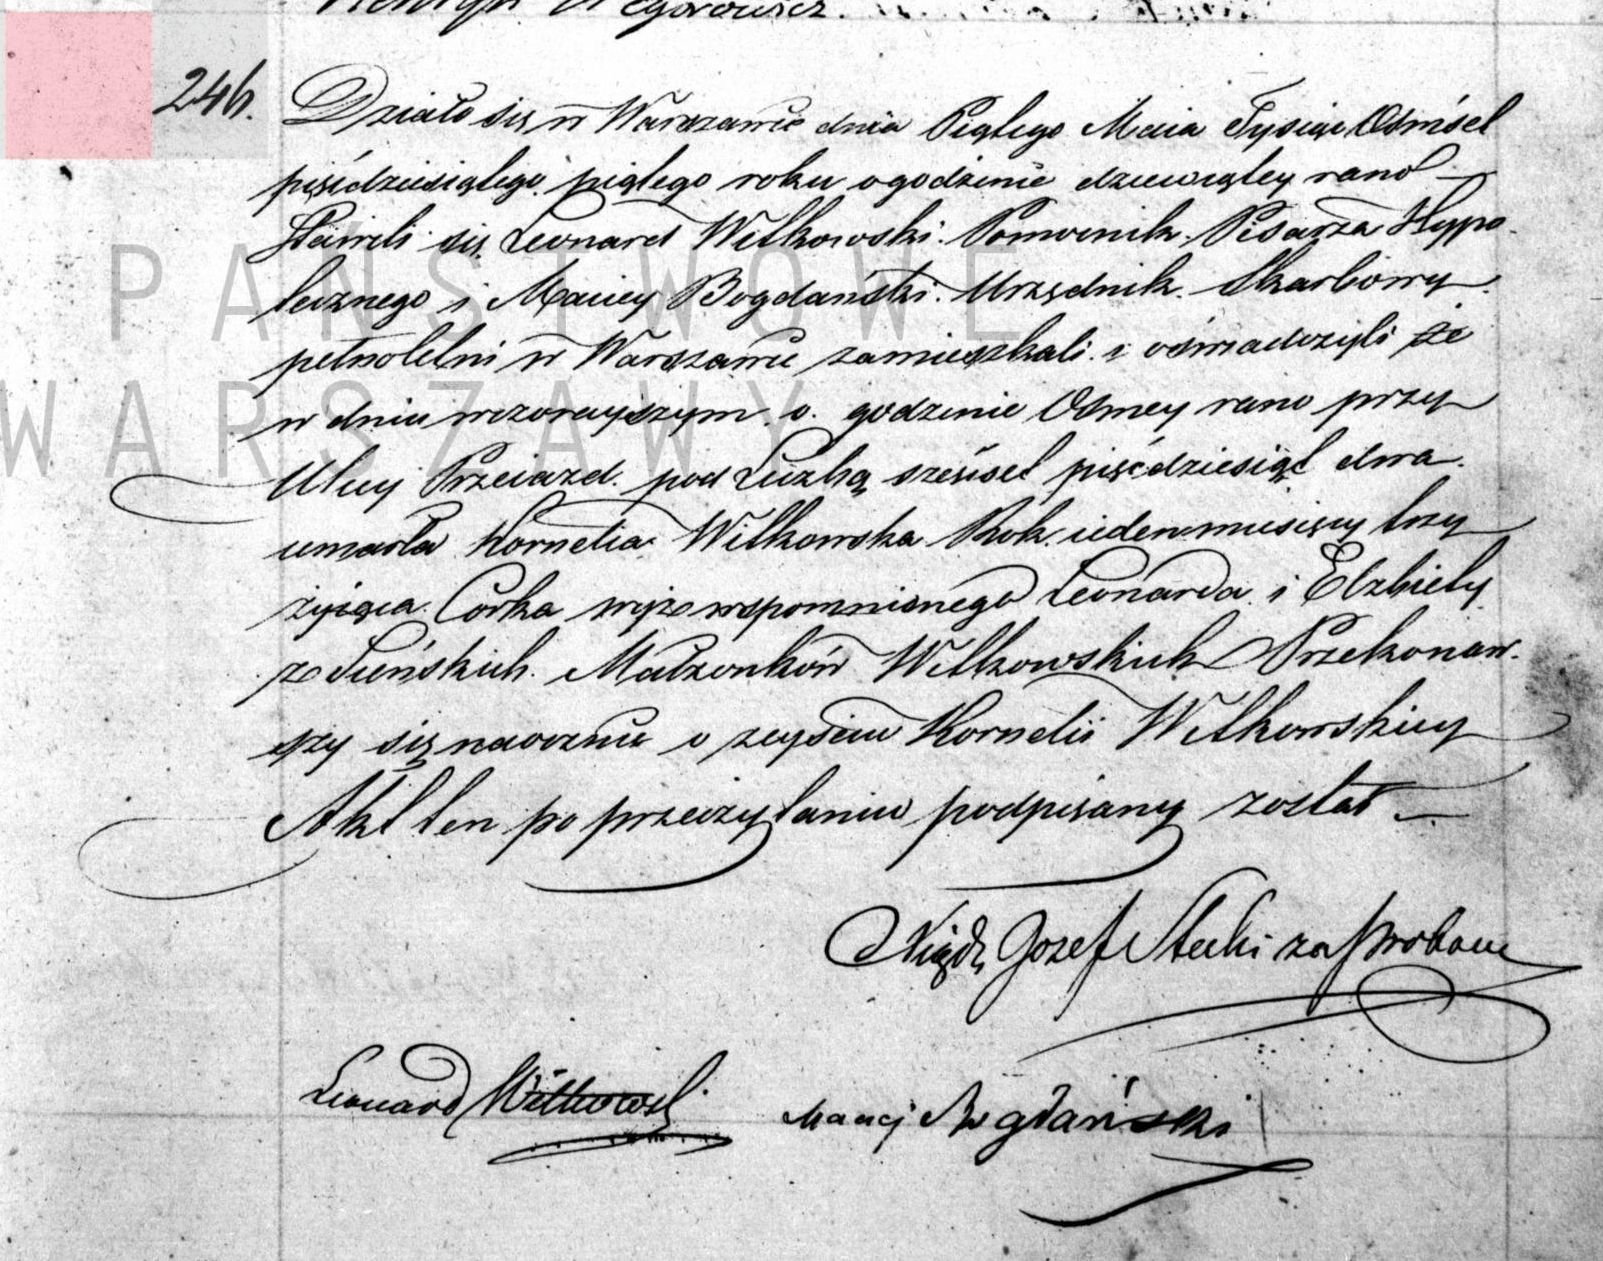 246.
Działo się w Warszawie dnia Piątego Maia Tysiąc Ośmset
pięćdziesiątego piątego roku o godzinie dziewiątey rano
Stawili się Leonard Witkowski Pomocnik Pisarza Hypo-
tecznego i Maciey Bogdański Urzędnik Skarbowy
pełnoletni w Warszawie zamieszkali i oświadczyli że
w dniu wczorayszym o godzinie Osmey rano przy
Ulicy Przeiazd pod Liczbą sześćset pięćdziesiąt dwa
umarła Kornelia Witkowska Rok ieden miesięcy trzy
żyiąca Córka wyżewspomnionego Leonarda i Elżbiety
z Małżonków Witkowskich Przekonaw-
szy się naocznie o zeyściu Kornelii Witkowskiey
Akt ten po przeczytaniu podpisany został
Xiądz Jozef Stecki za Proboszcza
Leonard Witkowski Maciej Bogdański
PAŃSTWOWE
WARSZAWY